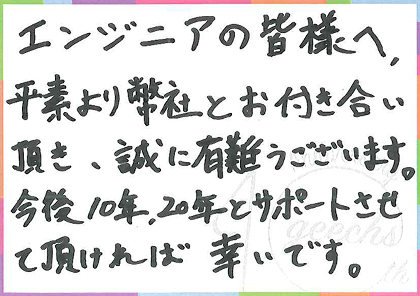 エンジニアの皆様へ,
平素より弊社とお付き合い
頂き、誠に有難うございます。
今後10年,20年とサポートさせ
て頂ければ幸いです。
geechs
10th